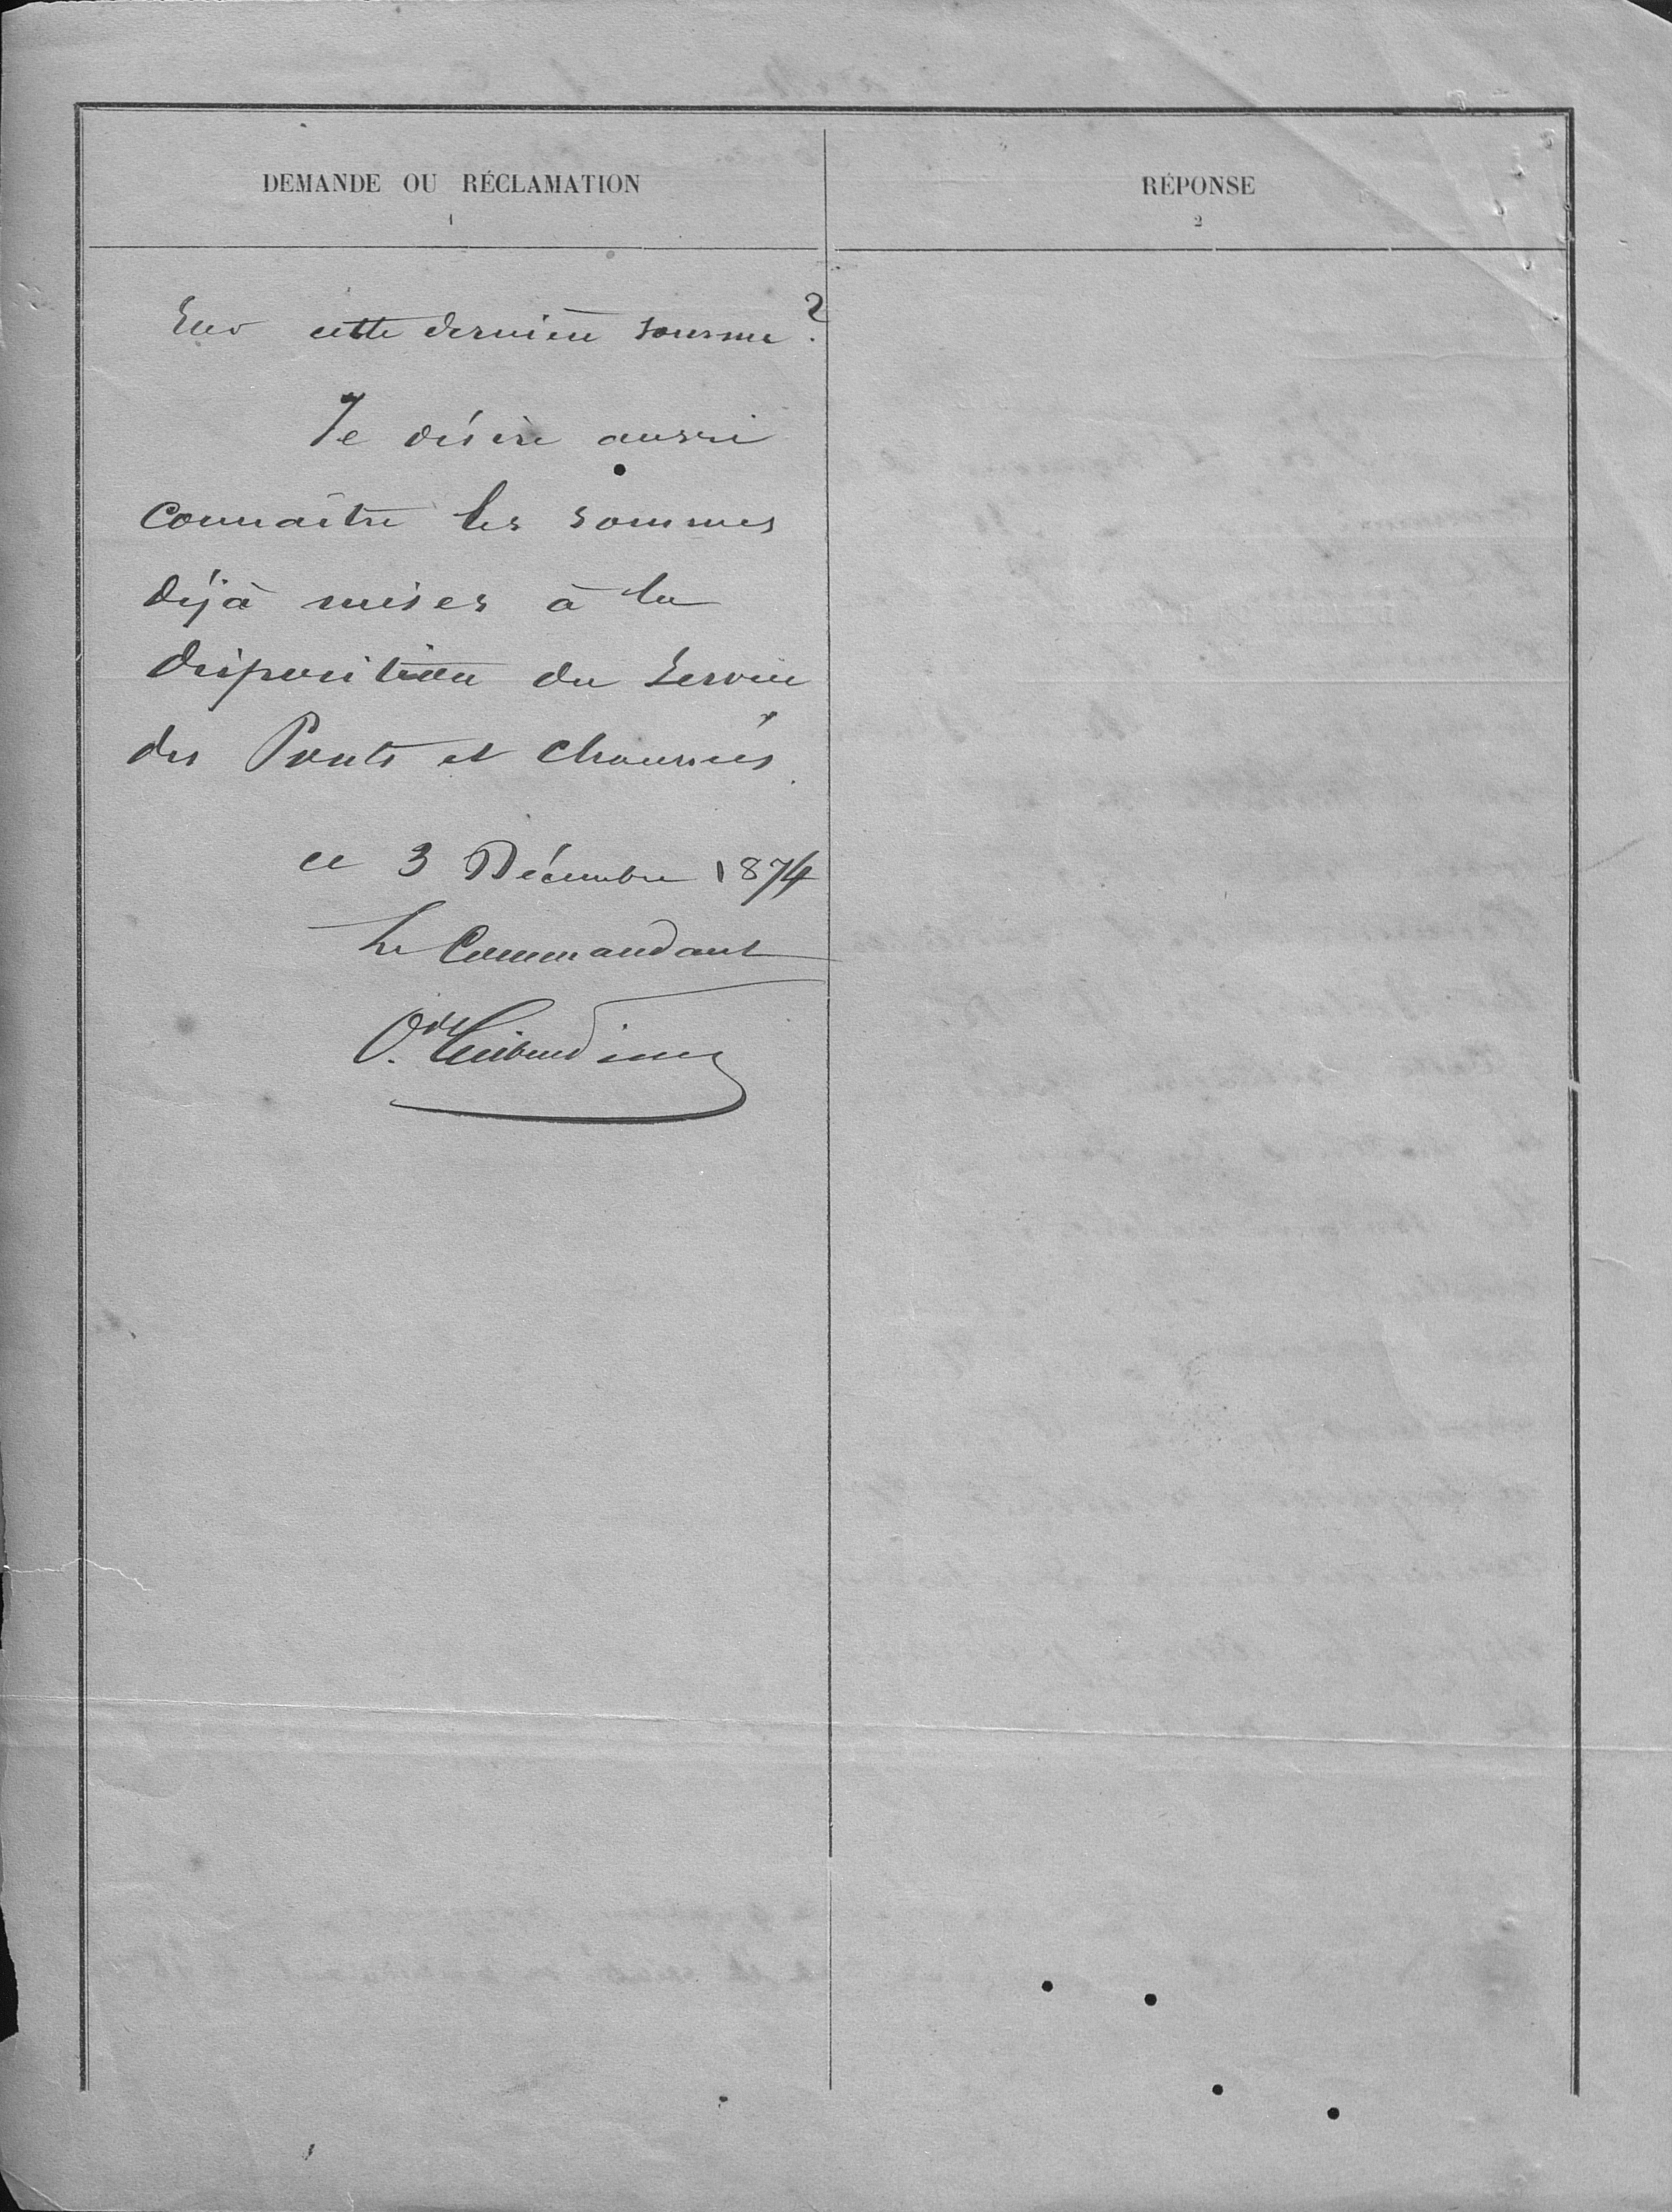 DEMANDE OU RÉCLAMATION
1
RÉPONSE
2
cette dernière somme ?
Je désire aussi
connaître les sommes
déjà mises à la
disposition du Service
des Ponts et Chaussées.
ce 3 Décembre 1874
Le Commandant